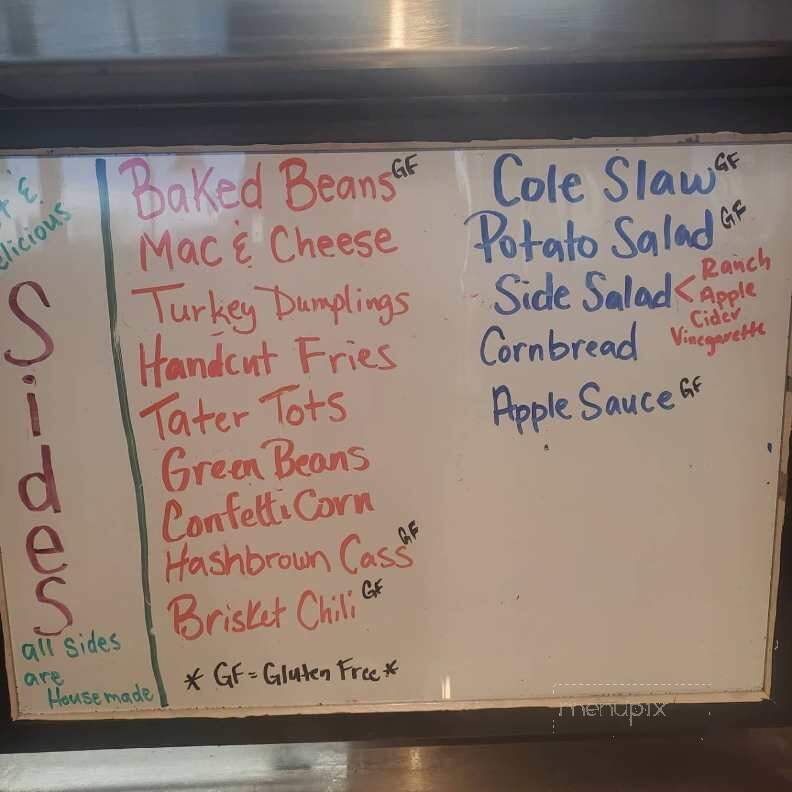 &
elicious
Sides
all sides
are
Housemade
Baked Beans GF
Mac & Cheese
Turkey Dumplings
Handcut Fries
Tater Tots
Green Beans
Confetti Corn
Hashbrown Cass GF
Brisket Chili GF
* GF = Gluten Free *
Cole Slaw GF
Potato Salad GF
Side Salad < Ranch
Apple
Cider
Vinegarette
Cornbread
Apple Sauce GF
menupix